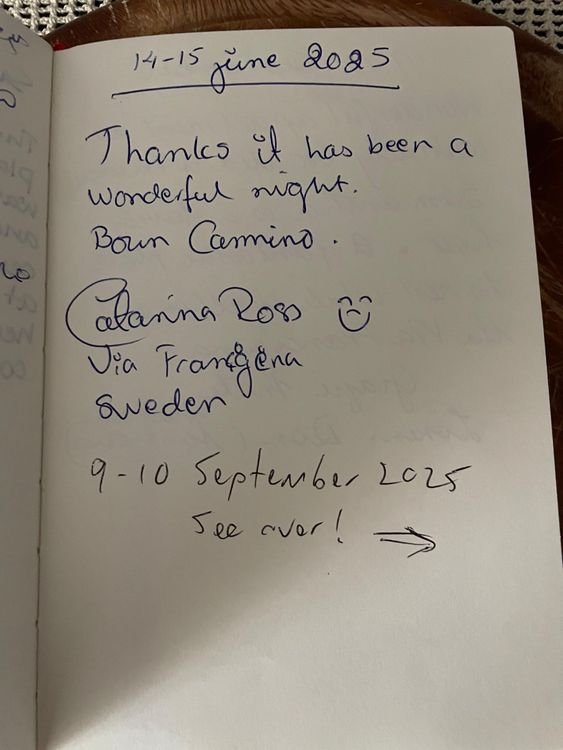 14-15 june 2025
Thanks it has been a
wonderful night.
Boun Cammino.
Catarina Ross
Via Francigena
Sweden
9-10 September 2025
See over!